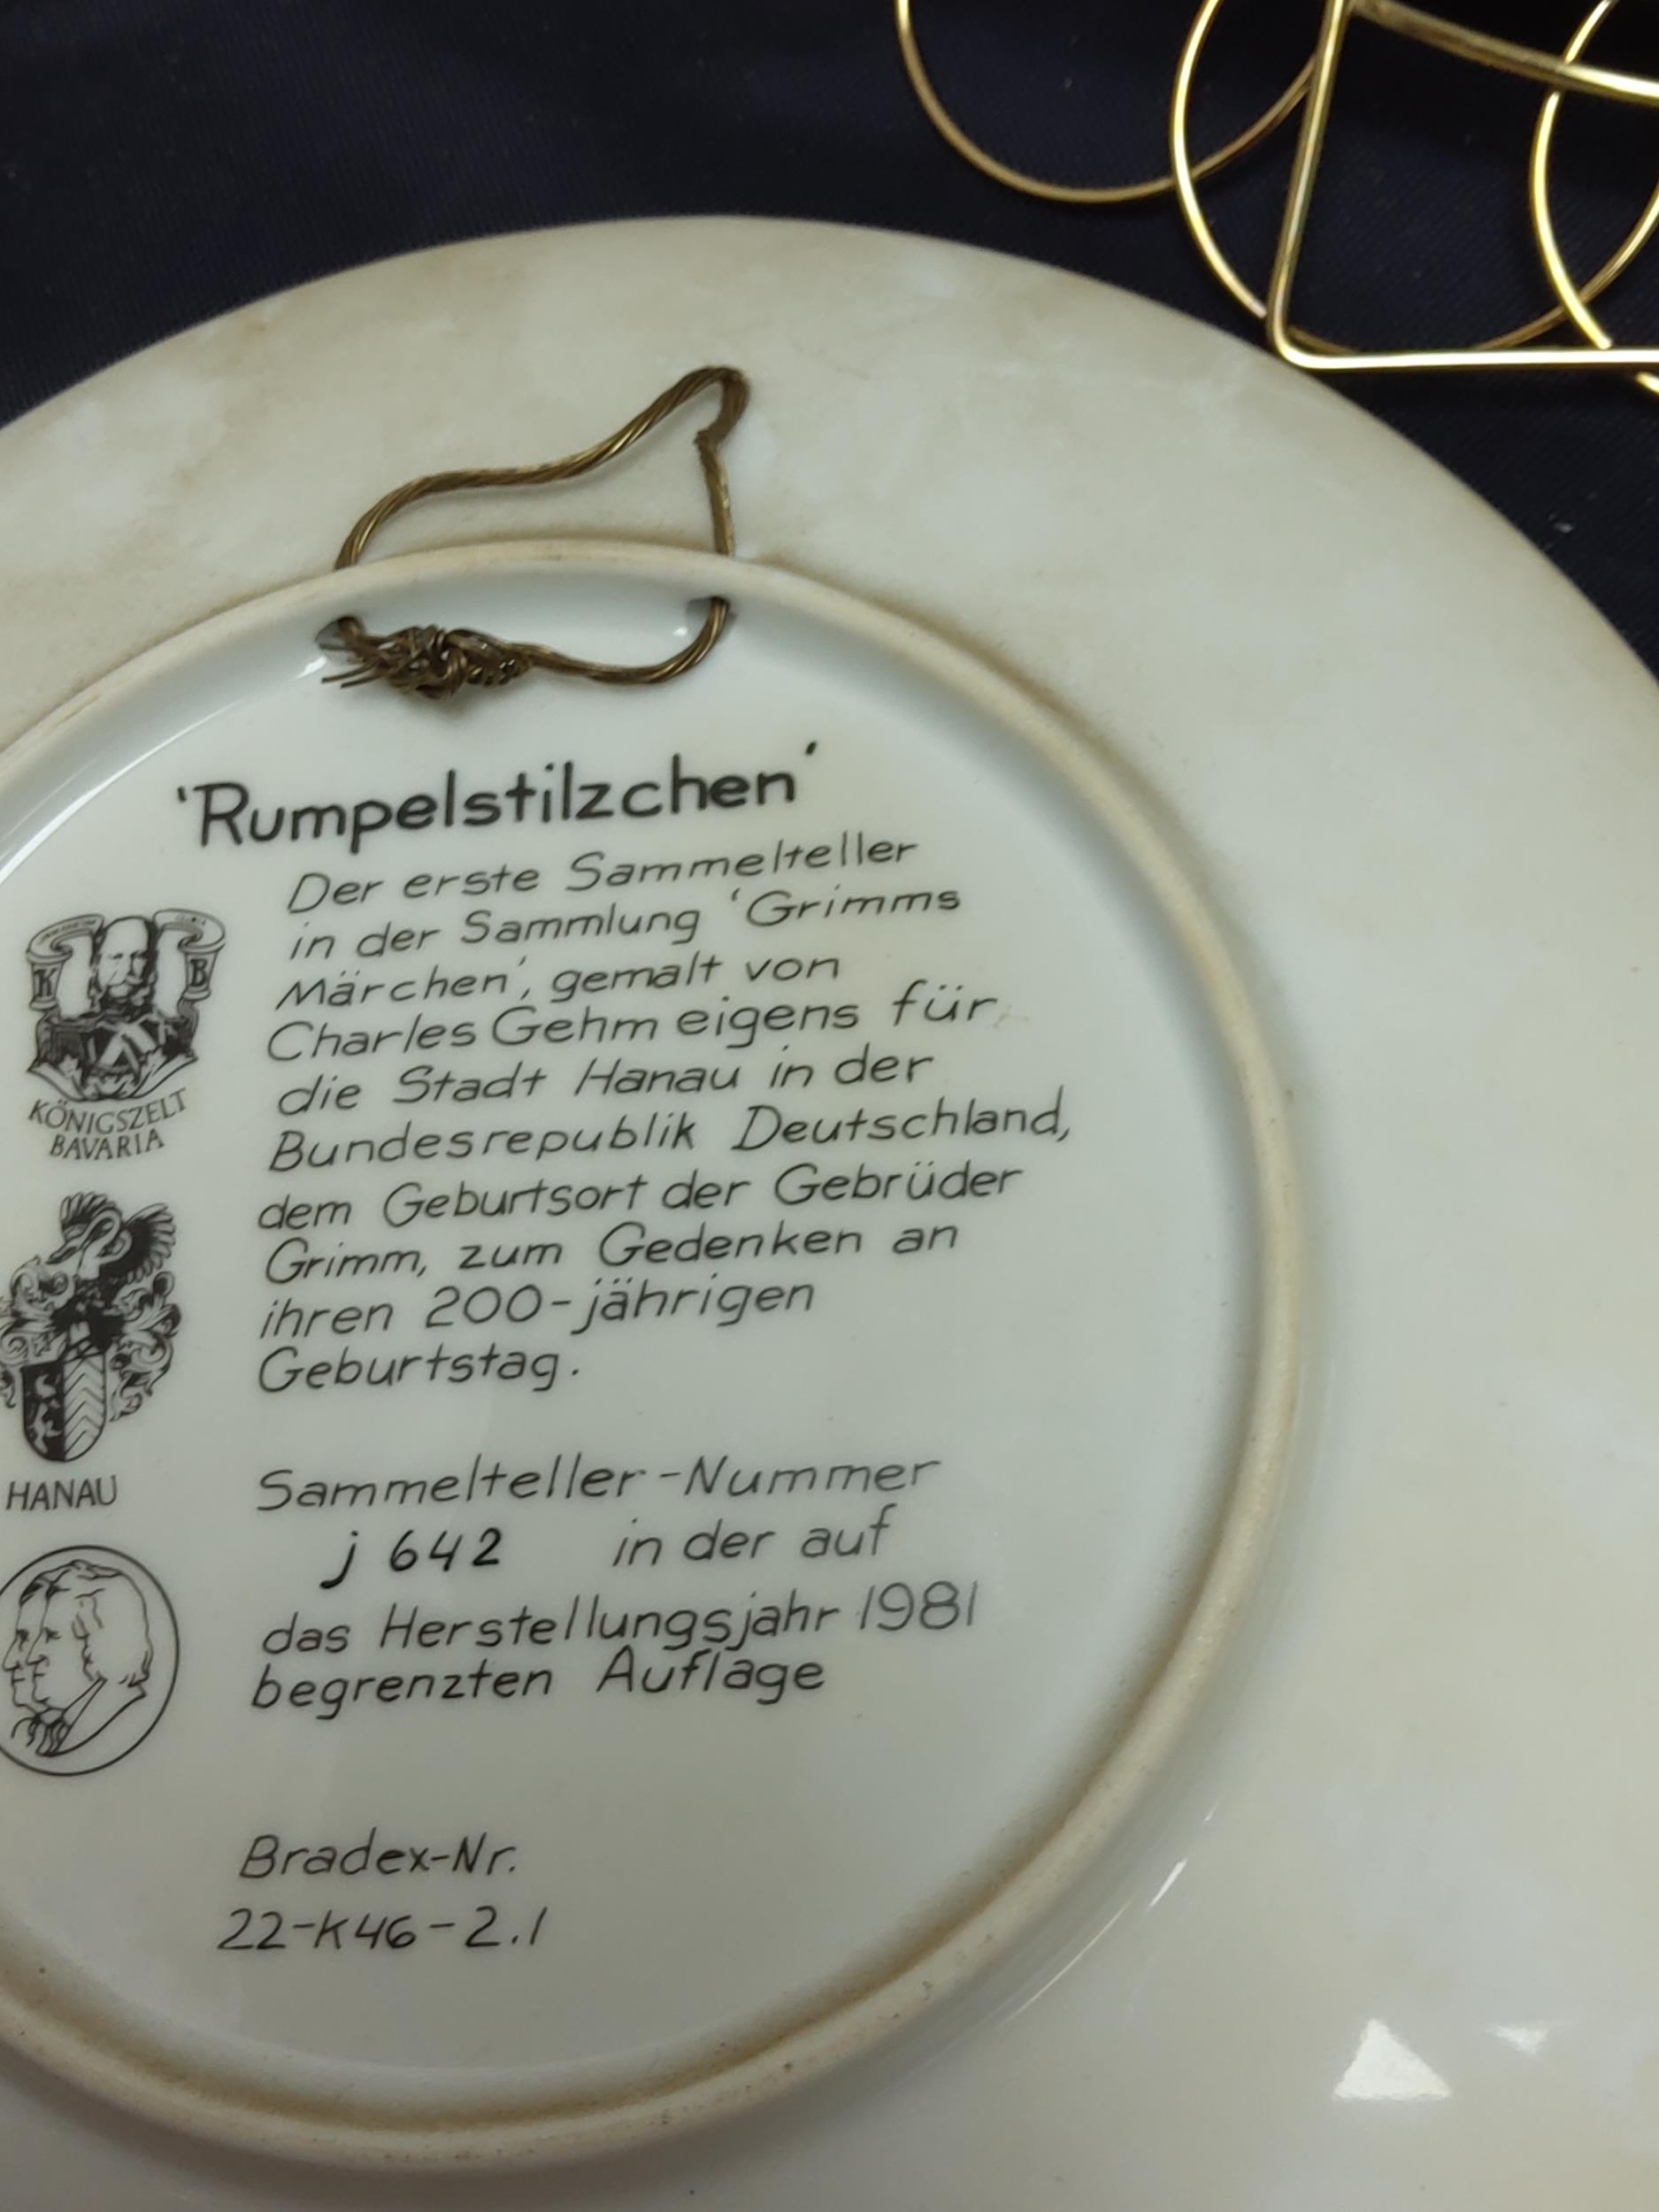 'Rumpelstilzchen'
Der erste Sammelteller
in der Sammlung 'Grimms
Märchen', gemalt von
Charles Gehm eigens für
die Stadt Hanau in der
Bundesrepublik Deutschland,
dem Geburtsort der Gebrüder
Grimm, zum Gedenken an
ihren 200-jährigen
Geburtstag.
Sammelteller-Nummer
j 642 in der auf
das Herstellungsjahr 1981
begrenzten Auflage
Bradex-Nr.
22-K46-2.1
K B
KÖNIGSZELT
BAVARIA
HANAU